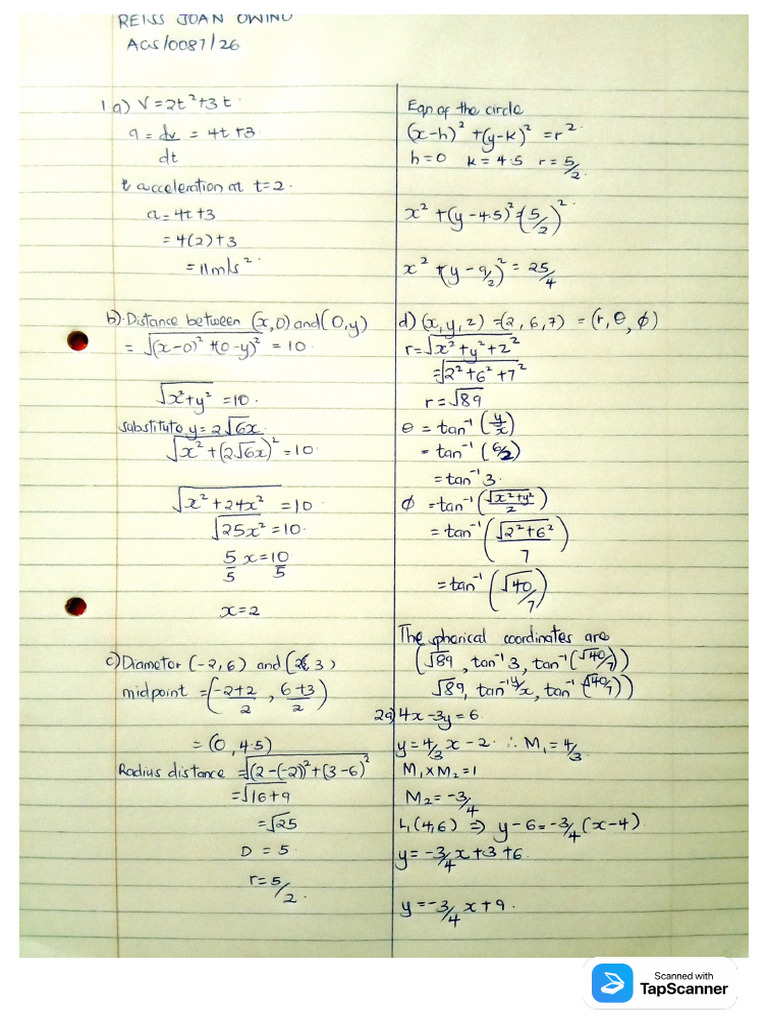 REISS JOAN OWINO
ACS/0087/26
1.a) V = 2t²+3t.
a = dv/dt = 4t+3.
acceleration at t=2.
a = 4t+3
= 4(2)+3
= 11m/s².
b). Distance between (x,0) and (0,y)
= √((x-0)² +(0-y)²) = 10.
√(x²+y²) = 10.
substitute y = 2√6x.
√(x² + (2√6x)²) = 10.
√(x² + 24x²) = 10
√(25x²) = 10.
5/5 x = 10/5
x = 2
c) Diameter (-2,6) and (2, 3)
midpoint = (-2+2/2 , 6+3/2)
= (0, 4.5)
Radius distance = √((2-(-2))² + (3-6)²)
= √(16+9)
= √25
D = 5.
r = 5/2.
Eqn of the circle
(x-h)² + (y-k)² = r².
h=0 k = 4.5 r = 5/2.
x² + (y-4.5)² = (5/2)².
x² + (y - 9/2)² = 25/4
d) (x, y, z) = (2, 6, 7) = (r, θ, φ)
r = √(x² + y² + z²)
= √(2² + 6² + 7²)
r = √89
θ = tan⁻¹ (y/x)
= tan⁻¹ (6/2)
= tan⁻¹ 3.
φ = tan⁻¹ (√(x²+y²)/z)
= tan⁻¹ (√(2²+6²)/7)
= tan⁻¹ (√40/7)
The spherical coordinates are
(√89, tan⁻¹3, tan⁻¹(√40/7))
√89, tan⁻¹ y/x, tan⁻¹ (√40/7))
2a) 4x - 3y = 6.
y = 4/3 x - 2 ∴ M₁ = 4/3.
M₁ x M₂ = 1
M₂ = -3/4
L₁ (4,6) ⇒ y - 6 = -3/4 (x-4)
y = -3/4 x + 3 + 6.
y = -3/4 x + 9.
Scanned with
TapScanner